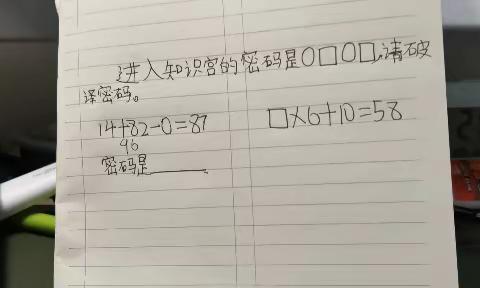 进入知识宫的密码是○□○□,请破
译密码。
14+82-○=87
□×6+10=58
96
密码是______.